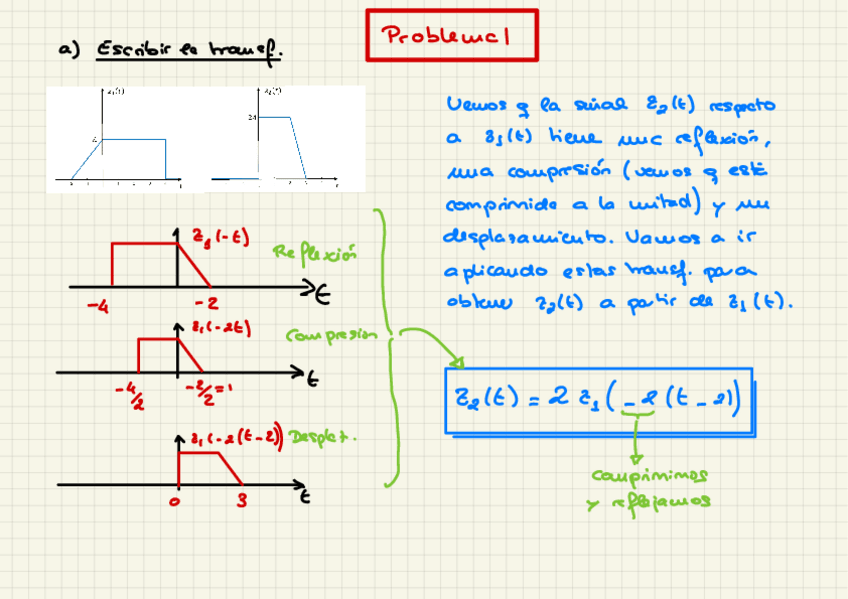 Problema 1
a) Escribir la transf.
x₁(t)
A
x₂(t)
2A
Vemos q la señal x₂(t) respecto
a x₁(t) tiene una reflexión,
una compresión (vemos q está
comprimida a la mitad) y un
desplazamiento. Vamos a ir
aplicando estas transf. para
obtener x₂(t) a partir de x₁(t).
x₁(-t)
Reflexión
-4 -2 t
x₁(-2t)
Compresion
-4/2 -2/2=1 t
x₁(-2(t-2)) Desplaz.
0 3 t
x₂(t) = 2 x₁(-2(t-2))
comprimimos
y reflejamos